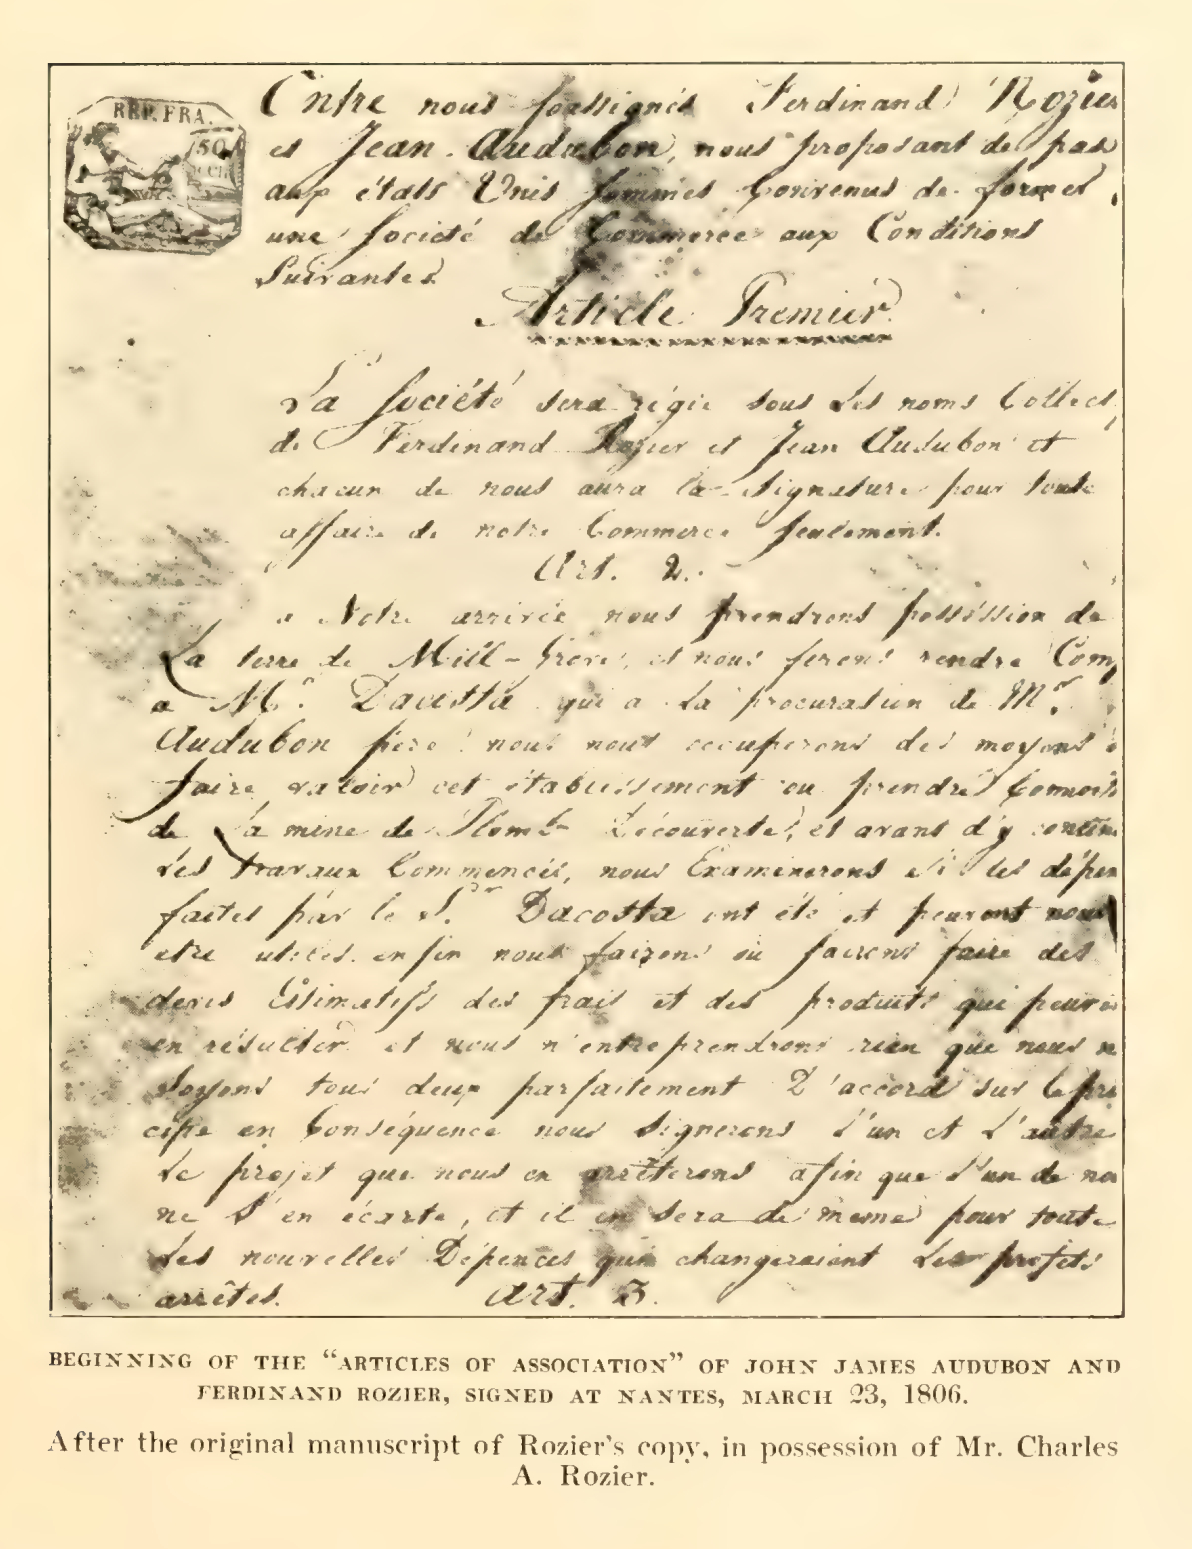 REP. FRA.
50
Entre nous soussignés Ferdinand Rozier
et Jean Audubon, nous proposant de pas
aux états Unis sommes Convenus de former
une Société de Commerce aux Conditions
Suivantes
Article Premier
La Société sera régie sous Les noms Collect
de Ferdinand Rozier et Jean Audubon et
chacun de nous aura la Signature pour toute
affaire de notre Commerce seulement.
Art. 2.
a Notre arrivée nous prendrons possession de
La terre de Mill-Grove, et nous ferons rendre Comp
a Mr. Dacosta qui a La procuration de Mr.
Audubon père nous nous occuperons des moyens
faire valoir cet établissement ou prendre Connois
de La mine de Plomb Découverte, et avant d'y contin
Les travaux Commencés, nous Examinerons si les dépen
faites par le Sr. Dacosta ont été et peuvent nous
etre utiles. enfin nous fairons ou fairons faire des
devis Estimatifs des frais et des produits qui peuve
en résulter et nous n'entreprendrons rien que nous n
Soyons tous deux parfaitement D'accord sur le prin
cipe en Conséquence nous Signerons L'un et L'autre
Le projet que nous en arrêterons afin que L'un de nou
ne S'en écarte, et il en sera de meme pour toute
Les nouvelles Dépences qui changeraient Les projets
arrêtes. Art. 3.
BEGINNING OF THE "ARTICLES OF ASSOCIATION" OF JOHN JAMES AUDUBON AND
FERDINAND ROZIER, SIGNED AT NANTES, MARCH 23, 1806.
After the original manuscript of Rozier's copy, in possession of Mr. Charles
A. Rozier.